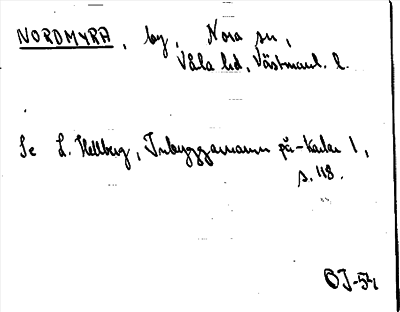 NORDMYRA, by, Nora sn,
Våla hd, Västmanl. l.
Se L. Hellberg, Inbyggarnamn på -karlar 1,
s. 118.
OJ-54